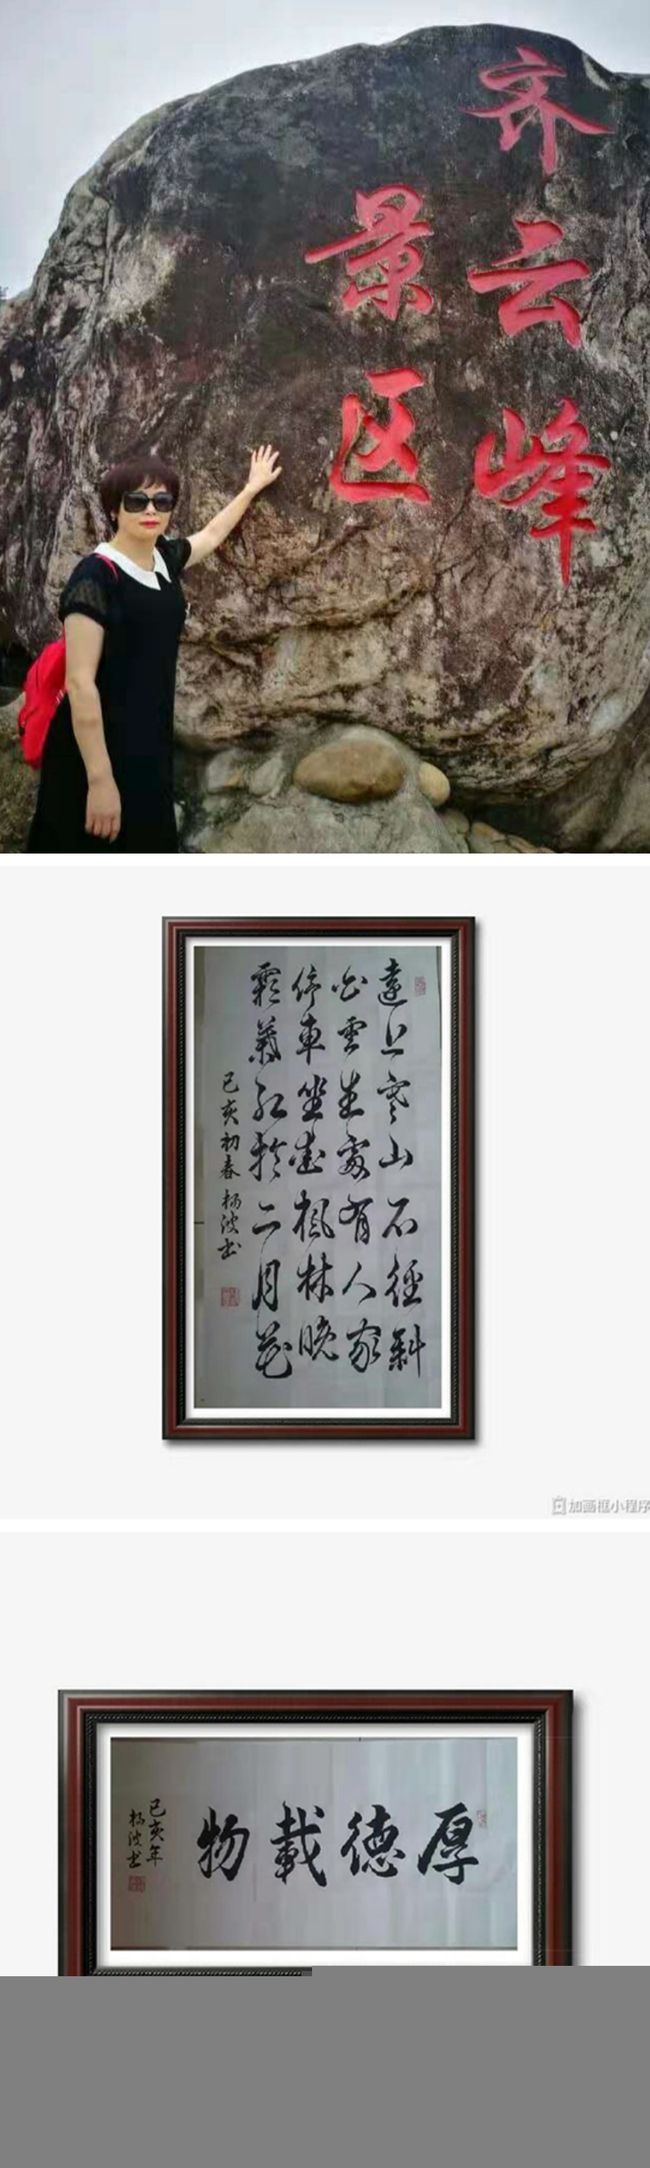 齐云峰
景区
遠上寒山石徑斜
白雲生處有人家
停車坐愛楓林晚
霜葉紅於二月花
己亥初春 楊波书
加画框小程序
厚德載物
己亥年
楊波书